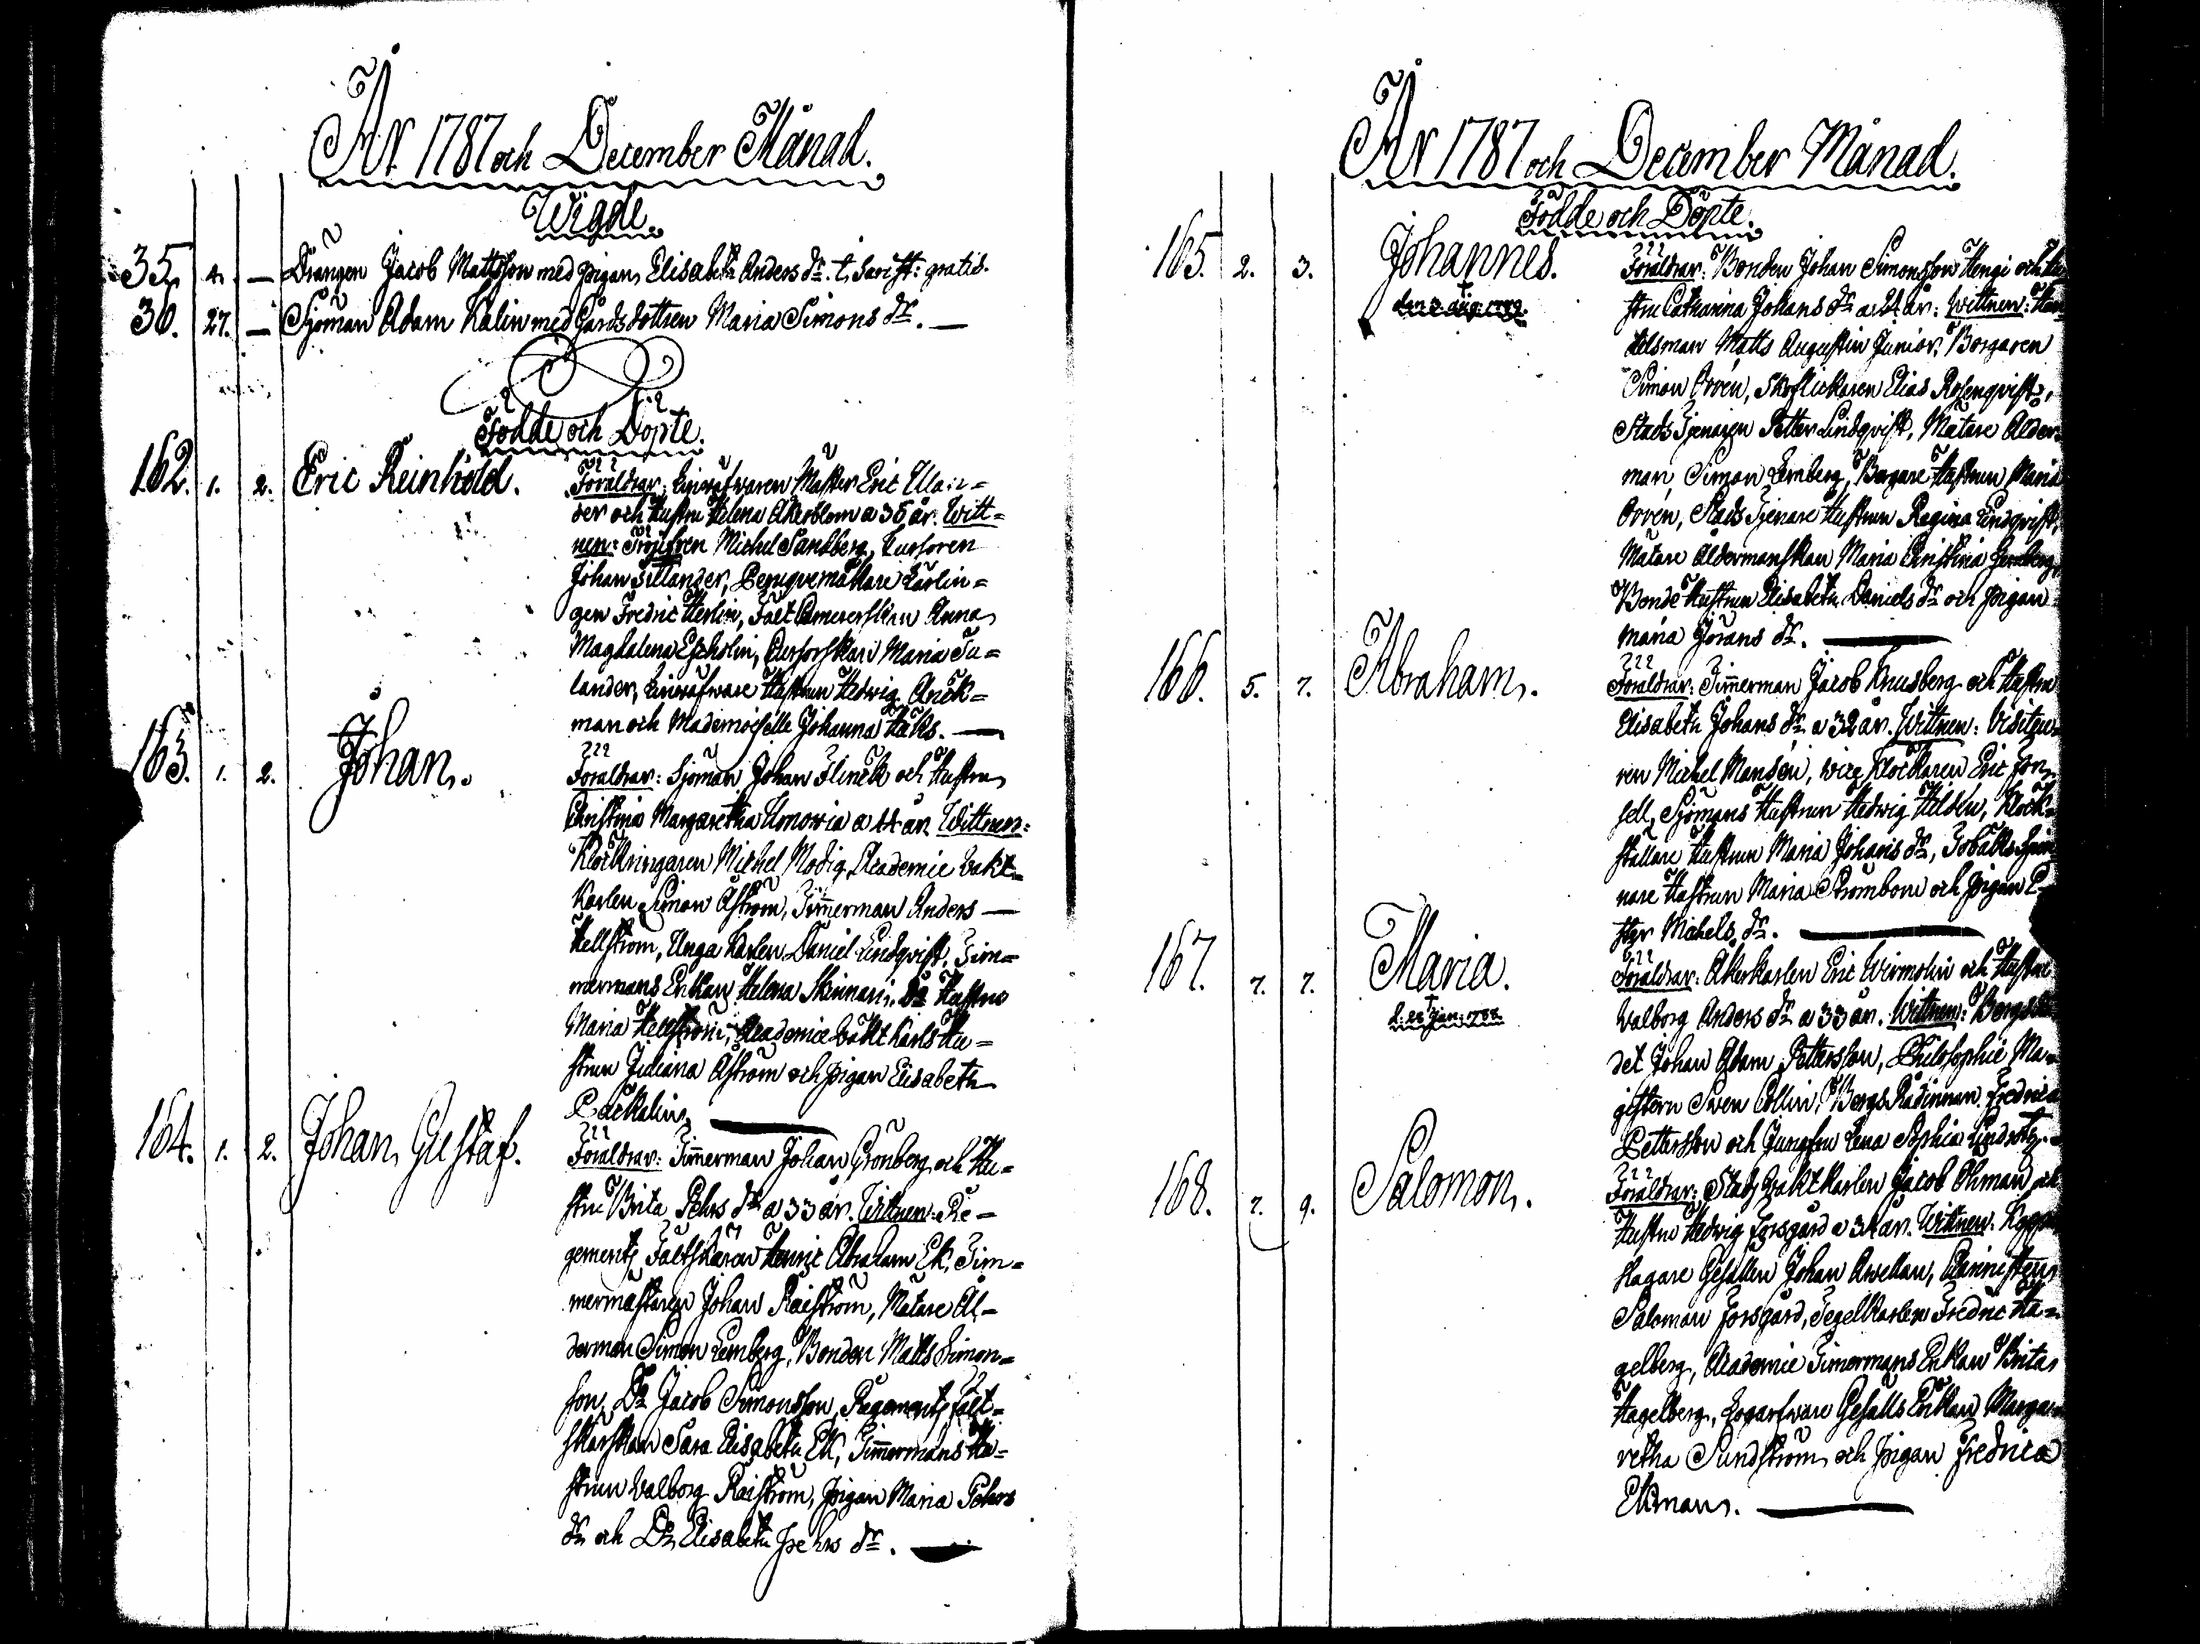 År 1787 och December Månad.
Wigde.
35. 2. — Drängen Jacob Mattsson med pigan Elisabeth Anders dr. gratis.
36. 27. — Sjöman Adam Kalin med Gårds dottren Maria Simons dr. —
Födde och Döpte.
162. 1. 2. Eric Reinhold. Föräldrar: Mäster Eric
der och Hustru Helena Åkerblom a 36 år. Witt=
nen: Michel Sandberg, Cursoren
Johan Sellander, Peruquemakare Lärlin=
gen Fredric Herlin, Fält Anna
Magdalena Escholin, Cursorskan Maria
lander, Hustrun Hedwig Anck=
man och Mademoiselle Johanna —
163. 1. 2. Johan. Föräldrar: Sjöman Johan Flinck och Hustru
Christina Margaretha a 44 år. Wittnen:
Klockringaren Michel Modig, Academie Vakt=
Karlen Simon Åström, Timmerman Anders —
Hellström, Unga Karlen Daniel Lindqvist, Tim=
mermans Enkan Helena Skinnari, Do Hustrun
Maria Hellström, Academie Vakt Karls Hu=
strun Juliana Åström och pigan Elisabeth
Packalin. —
164. 1. 2. Johan Gustaf. Föräldrar: Timmerman Johan Grönberg och Hu=
stru Brita Pehrs dr a 33 år. Wittnen: Re=
gements Fältskären Henric Abraham Ek, Tim=
mermästaren Johan Räiström, Mätare Ål=
derman Simon Lemberg, Bonden Matts Simon=
son, Do Jacob Simonsson, Regements Fält=
skärskan Sara Elisabeth Ek, Timmermans Hu=
strun Valborg Räiström, Pigan Maria Pehrs
dr och Do Elisabeth Pehrs dr. —
År 1787 och December Månad.
Födde och Döpte.
165. 2. 3. Johannes. Föräldrar: Bonden Johan Simonsson Hengi och Hu
stru Catharina Johans dr a 24 år: Wittnen: Han
delsman Matts Augustin Junior, Borgaren
Simon Orvén, Skoflickaren Elias Rosenqvist,
Stads Tjenaren Petter Lindqvist, Mätare Ålder=
man Simon Lemberg, Borgare Hustrun Maria
Orvén, Stads Tjenare Hustrun Regina Lindqvist,
Mätare Åldermanskan Maria Christina Lemberg,
Bonde Hustrun Elisabeth Daniels dr och pigan
Maria Jörans dr. —
166. 5. 7. Abraham. Föräldrar: Timmerman Jacob Knusberg och Hustru
Elisabeth Johans dr a 32 år. Wittnen: Visiteu=
ren Michel Mansén, vice Klockaren Eric Fon=
sell, Sjömans Hustrun Hedwig Hildén, Klock=
ställare Hustrun Maria Johans dr, Tobaks Spin
nare Hustrun Maria Strömbom och pigan E=
ster Michels dr. —
167. 7. 7. Maria. Föräldrar: Åkerkarlen Eric Wirmolin och Hustru
d. 22 Jan: 1788. Valborg Anders dr a 33 år. Wittnen: Bergsrå
det Johan Adam Pettersson, Philosophie Ma=
gistern Sven Collin, Bergs Rådinnan Fredrica
Pettersson och Jungfru Lena Sophia
168. 7. 9. Salomon. Föräldrar: Stads Vakt Karlen Jacob Öhman och
Hustru Hedwig Forsgård a 34 år. Wittnen: Koppar
slagare Gesällen Johan Avellan,
Salomon Forsgård, Tegelkarlen Fredric Ha=
gelberg, Academie Timermans Enkan Brita
Hagelberg, Gesälls Enkan Marga=
retha Sundström och pigan Fredrica
Ekman. —